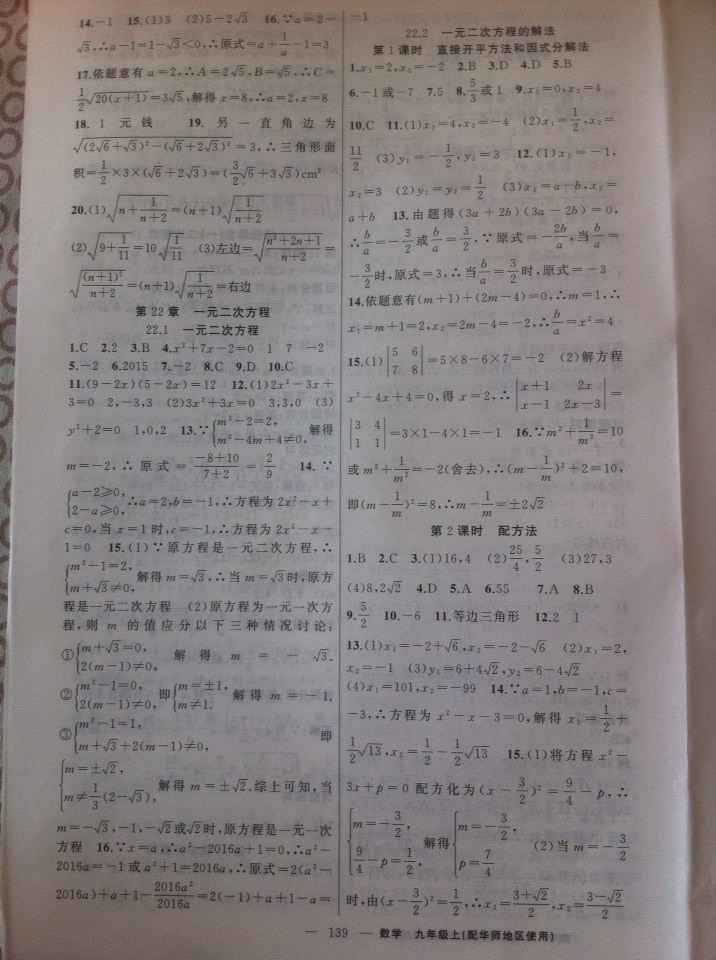 14.-1 15.(1)3 (2)5-2√3 16.∵a=2-
√3,∴a-1=1-√3<0,∴原式=a+1/a-1=3
17.依题意有a=2,∴A=2√5,B=√5,∴C=
1/2√20(x+1)=3√5,解得x=8,∴a=2,x=8
18.1元钱 19.另一直角边为
√(2√6+√3)²-(√6+2√3)²=3,∴三角形面
积=1/2×3×(√6+2√3)=(3/2√6+3√3)cm²
20.(1)√(n+1/(n+2))=(n+1)√(1/(n+2))
(2)√(9+1/11)=10√(1/11) (3)左边=√((n²+2n+1)/(n+2))=
√((n+1)²/(n+2))=(n+1)√(1/(n+2))=右边
第22章 一元二次方程
22.1 一元二次方程
1.C 2.2 3.B 4.x²+7x-2=0 1 7 -2
5.-2 6.2015 7.-2 8.C 9.D 10.C
11.(9-2x)(5-2x)=12 12.(1)2x²-3x+
3=0 2,-3,3 (2)3x²+3x=0 3,3,0 (3)
y²+2=0 1,0,2 13.∵{m²-2=2, m²-4m+4≠0, 解得
m=-2,∴原式=(-8+10)/(7+2)=2/9 14.∵
{a-2≥0, 2-a≥0, ∴a=2,b=-1,∴方程为2x²-x+
c=0,当x=1时,c=-1,∴方程为2x²-x-
1=0 15.(1)∵原方程是一元二次方程,∴
{m²-1=2, m+√3≠0, 解得m=√3,∴当m=√3时,原方
程是一元二次方程 (2)原方程为一元一次方
程,则m的值应分以下三种情况讨论:
①{m+√3=0, 2(m-1)≠0, 解得m=-√3.
②{m²-1=0, 2(m-1)≠0, 即{m=±1, m≠1. 解得m=-1.
③{m²-1=1, m+√3+2(m-1)≠0, 即
{m=±√2, m≠1/3(2-√3), 解得m=±√2.综上可知,当
m=-√3,-1,-√2或√2时,原方程是一元一次
方程 16.∵x=a,∴a²-2016a+1=0,∴a²-
2016a=-1或a²+1=2016a,∴原式=2(a²-
2016a)+a+1-2016a²/2016a=2(-1)+a+1-a=
-1
22.2 一元二次方程的解法
第1课时 直接开平方法和因式分解法
1.x₁=2,x₂=-2 2.B 3.D 4.D 5.B
6.-1或-7 7.5 8.5/3或1 9.x₁=0,x₂=4
10.C 11.(1)x₁=4,x₂=-4 (2)x₁=1/2,x₂=
11/2 (3)y₁=-1/2,y₂=3 12.(1)x₁=-1,
x₂=3 (2)y₁=y₂=1/2 (3)x₁=a-b,x₂=
a+b 13.由题得(3a+2b)(3a-2b)=0,
∴b/a=-3/2或b/a=3/2,∵原式=-2b/a,当b/a=
-3/2时,原式=3,∴当b/a=3/2时,原式=-3
14.依题意有(m+1)+(2m-4)=0,∴m=1,∴
x₁=m+1=2,x₂=2m-4=-2,∴b/a=x²=4
15.(1)|5 6; 7 8|=5×8-6×7=-2 (2)解方程
x²-4x+4=0,得x=2,∴|x+1 2x; x-1 2x-3|=
|3 4; 1 1|=3×1-4×1=-1 16.∵m²+1/m²=10
或m²+1/m²=-2(舍去),∴(m-1/m)²+2=10,
即(m-1/m)²=8,∴m-1/m=±2√2
第2课时 配方法
1.B 2.C 3.(1)16,4 (2)25/4,5/2 (3)27,3
(4)8,2√2 4.D 5.A 6.55 7.A 8.B
9.5/2 10.-6 11.等边三角形 12.2 1
13.(1)x₁=-2+√6,x₂=-2-√6 (2)x₁=2,
x₂=-1 (3)y₁=6+4√2,y₂=6-4√2
(4)x₁=101,x₂=-99 14.∵a=1,b=-1,c=
-3,∴方程为x²-x-3=0,解得x₁=1/2+
1/2√13,x₂=1/2-1/2√13 15.(1)将方程x²-
3x+p=0配方化为(x-3/2)²=9/4-p,∴
{m=-3/2, 9/4-p=1/2, 解得{m=-3/2, p=7/4 (2)当m=-3/2
时,由(x-3/2)²=1/2,∴x₁=(3+√2)/2,x₂=(3-√2)/2
— 139 — 数学 九年级上(配华师地区使用)